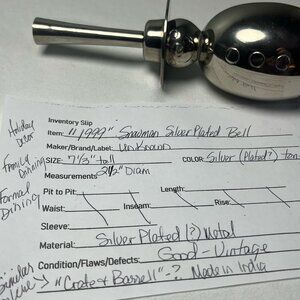 Inventory Slip
Holiday Decor
Item: "1999" Snowman Silver Plated Bell
Maker/Brand/Label: Unknown
Family Dining
SIZE: 7 1/3" tall COLOR: Silver (Plated?) ton
Measurements: 2 1/2" Diam
Formal Dining
Pit to Pit: Length:
Waist: Inseam: Rise:
Sleeve:
Material: Silver Plated (?) Metal
Condition/Flaws/Defects: Good - Vintage
Similar
→ "Crate & Barrell" -? Made in India